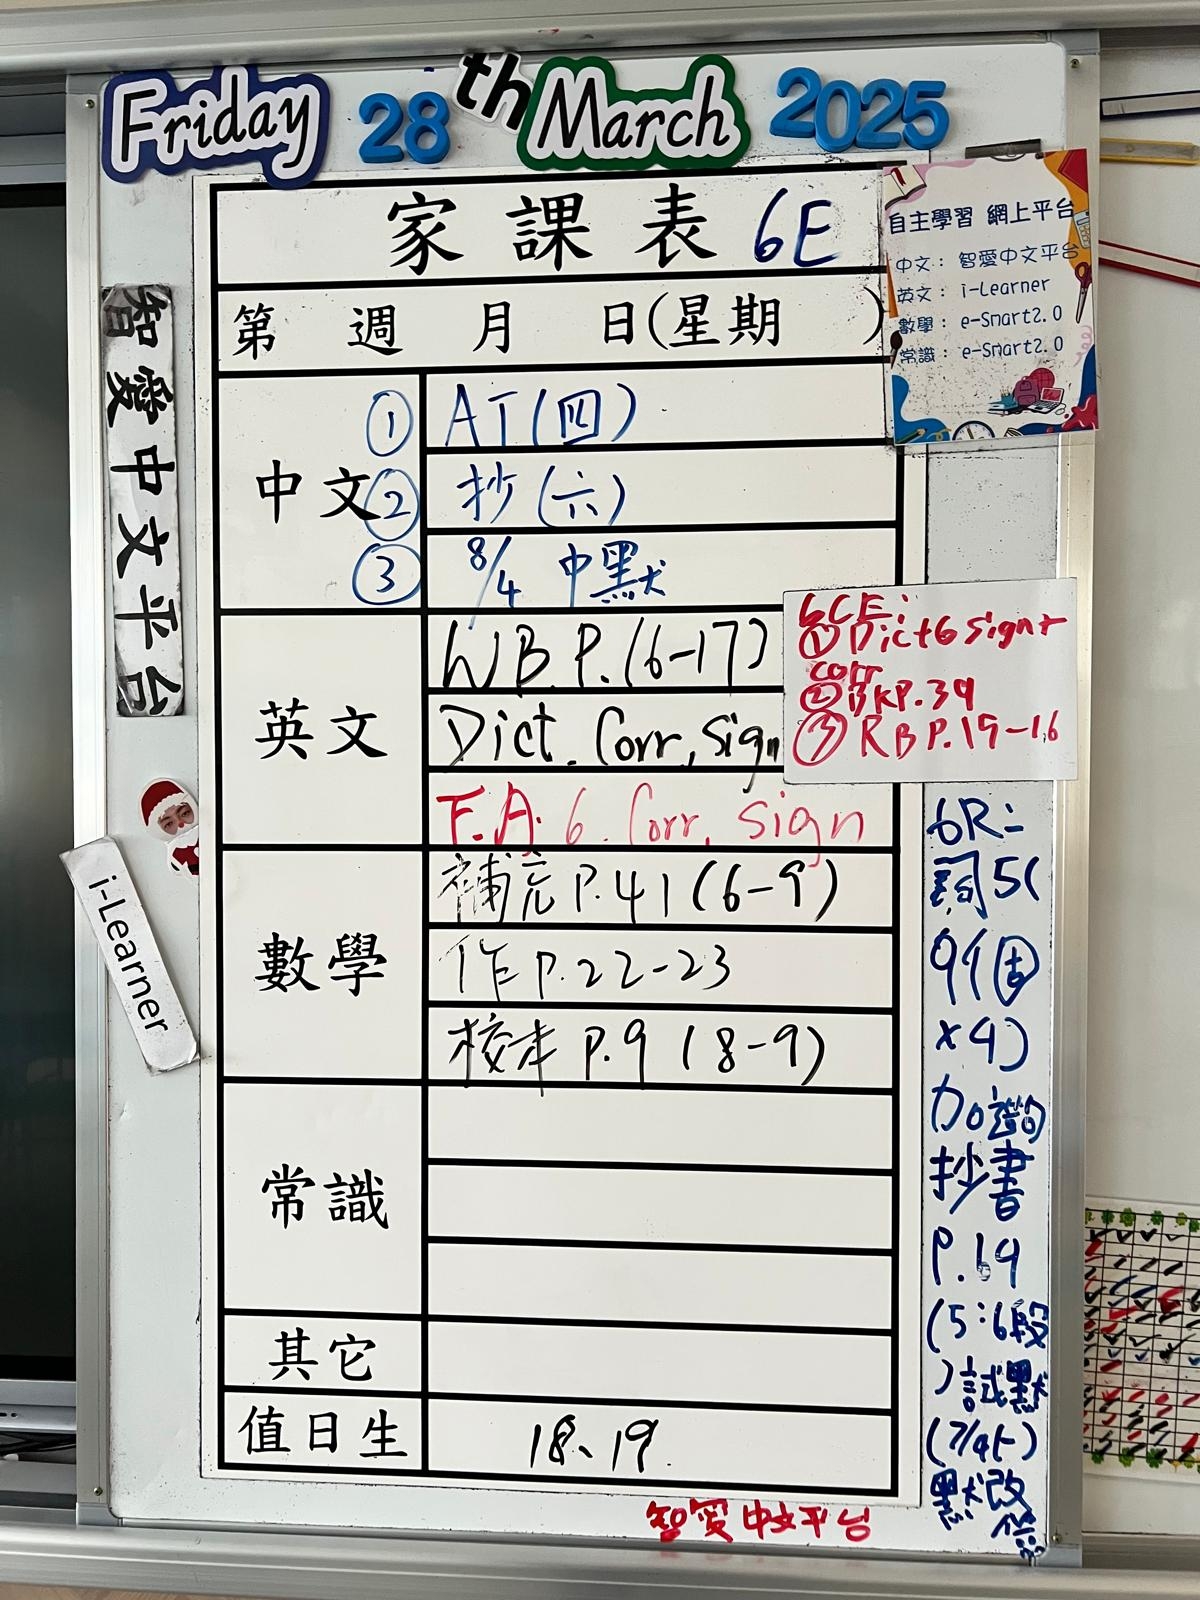 Friday 28th March 2025
家課表 6E
第 週 月 日(星期 )
自主學習 網上平台
中文： 智愛中文平台
英文： i-Learner
數學： e-Smart2.0
常識： e-Smart2.0
智愛中文平台
中文
① AT(四)
② 抄(六)
③ 8/4 中默
英文
WB P.(6-17)
Dict. Corr, sign
F.A. 6. Corr. sign
6CE:
①Dict6 sign+
corr
②BKP.39
③RBP.15-16
i-Learner
數學
補充 P.41(6-9)
作 P.22-23
校本 P.9 (8-9)
常識
其它
值日生
18、19
6R:
詞5(
x4)
加
抄書
P.19
(5:6段
)試默
默改
智愛中文平台